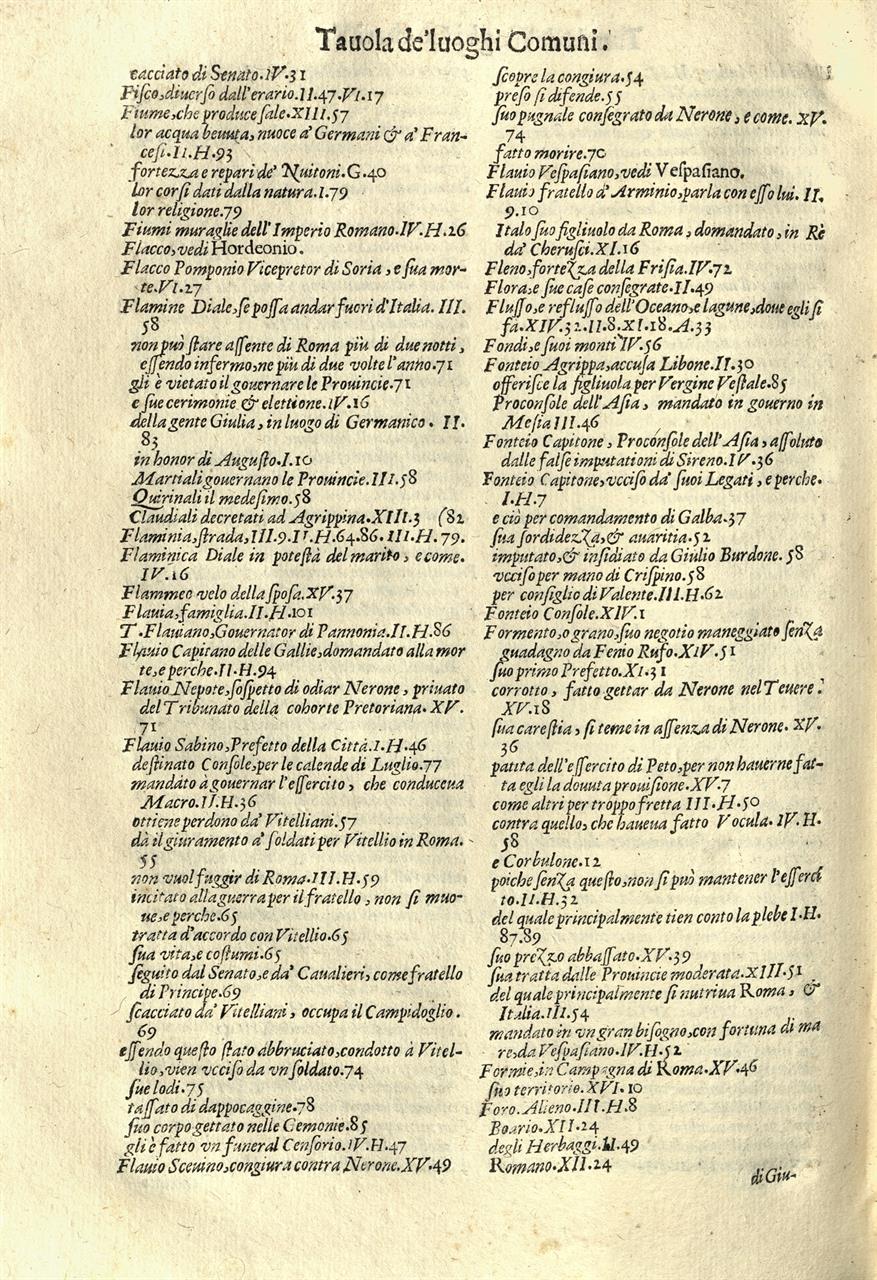 Tauola de'luoghi Comuni.
cacciato di Senato.IV.31
Fisco,diuerso dall'erario.II.47.VI.17
Fiume,che produce sale.XIII.57
lor acqua beuuta, nuoce a' Germani & a' Fran-
cesi.II.H.93
fortezza e repari de' Nuitoni.G.40
lor corsi dati dalla natura.I.79
lor religione.79
Fiumi muraglie dell'Imperio Romano.IV.H.26
Flacco,vedi Hordeonio.
Flacco Pomponio Vicepretor di Soria, e sua mor-
te.VI.27
Flamine Diale,se possa andar fuori d'Italia. III.
58
non può stare assente di Roma più di due notti,
essendo infermo,ne più di due volte l'anno.71
gli è vietato il gouernare le Prouincie.71
e sue cerimonie & elettione.IV.16
della gente Giulia, in luogo di Germanico. II.
83
in honor di Augusto.I.10
Martiali gouernano le Prouincie.III.58
Quirinali il medesimo.58
Claudiali decretati ad Agrippina.XIII.3 (82
Flaminia,strada,III.9.II.H.64.86.III.H.79.
Flaminica Diale in potestà del marito, e come.
IV.16
Flammeo velo della sposa.XV.37
Flauia,famiglia.II.H.101
T.Flauiano,Gouernator di Pannonia.II.H.86
Flauio Capitano delle Gallie,domandato alla mor
te,e perche.II.H.94
Flauio Nepote,sospetto di odiar Nerone, priuato
del Tribunato della cohorte Pretoriana. XV.
71
Flauio Sabino,Prefetto della Città.I.H.46
destinato Console,per le calende di Luglio.77
mandato à gouernar l'essercito, che conduceua
Macro.II.H.36
ottiene perdono da' Vitelliani.57
dà il giuramento a' soldati per Vitellio in Roma.
55
non vuol fuggir di Roma.III.H.59
incitato alla guerra per il fratello, non si muo-
ue,e perche.65
tratta d'accordo con Vitellio.65
sua vita,e costumi.65
seguito dal Senato,e da' Caualieri, come fratello
di Principe.69
scacciato da' Vitelliani, occupa il Campidoglio.
69
essendo questo stato abbruciato,condotto à Vitel-
lio,vien vcciso da vn soldato.74
sue lodi.75
tassato di dappocaggine.78
suo corpo gettato nelle Gemonie.85
gli è fatto vn funeral Censorio.IV.H.47
Flauio Sceuino,congiura contra Nerone.XV.49
scopre la congiura.54
preso si difende.55
suo pugnale consegrato da Nerone, e come. XV.
74
fatto morire.70
Flauio Vespasiano,vedi Vespasiano.
Flauio fratello d'Arminio,parla con esso lui. II.
9.10
Italo suo figliuolo da Roma, domandato, in Rè
da' Cherusci.XI.16
Fleno,fortezza della Frisia.IV.72
Flora,e sue case consegrate.II.49
Flusso,e reflusso dell'Oceano,e lagune,doue egli si
fa.XIV.32.II.8.XI.18.A.33
Fondi,e suoi monti IV.56
Fonteio Agrippa,accusa Libone.II.30
offerisce la figliuola per Vergine Vestale.85
Proconsole dell'Asia, mandato in gouerno in
Mesia III.46
Fonteio Capitone, Proconsole dell'Asia, assoluto
dalle false imputationi di Sireno.IV.36
Fonteio Capitone,vcciso da' suoi Legati, e perche.
I.H.7
e ciò per comandamento di Galba.37
sua sordidezza,& auaritia.52
imputato,& insidiato da Giulio Burdone. 58
vcciso per mano di Crispino.58
per consiglio di Valente.III.H.62
Fonteio Console.XIV.1
Formento,o grano,suo negotio maneggiato senza
guadagno da Fenio Rufo.XIV.51
suo primo Prefetto.XI.31
corrotto, fatto gettar da Nerone nel Teuere.
XV.18
sua carestia, si teme in assenza di Nerone. XV.
36
patita dell'essercito di Peto,per non hauerne fat-
ta egli la douuta prouisione.XV.7
come altri per troppo fretta III.H.50
contra quello, che haueua fatto Vocula. IV.H.
58
e Corbulone.12
poiche senza questo,non si può mantener l'esserci
to.II.H.32
del quale principalmente tien conto la plebe I.H.
87.89
suo prezzo abbassato.XV.39
sua tratta dalle Prouincie moderata.XIII.51
del quale principalmente si nutriua Roma, &
Italia.III.54
mandato in vn gran bisogno,con fortuna di ma
re,da Vespasiano.IV.H.52
Formie,in Campagna di Roma.XV.46
suo territorio.XVI.10
Foro. Alieno.III.H.8
Boario.XII.24
degli Herbaggi.II.49
Romano.XII.24
di Giu-